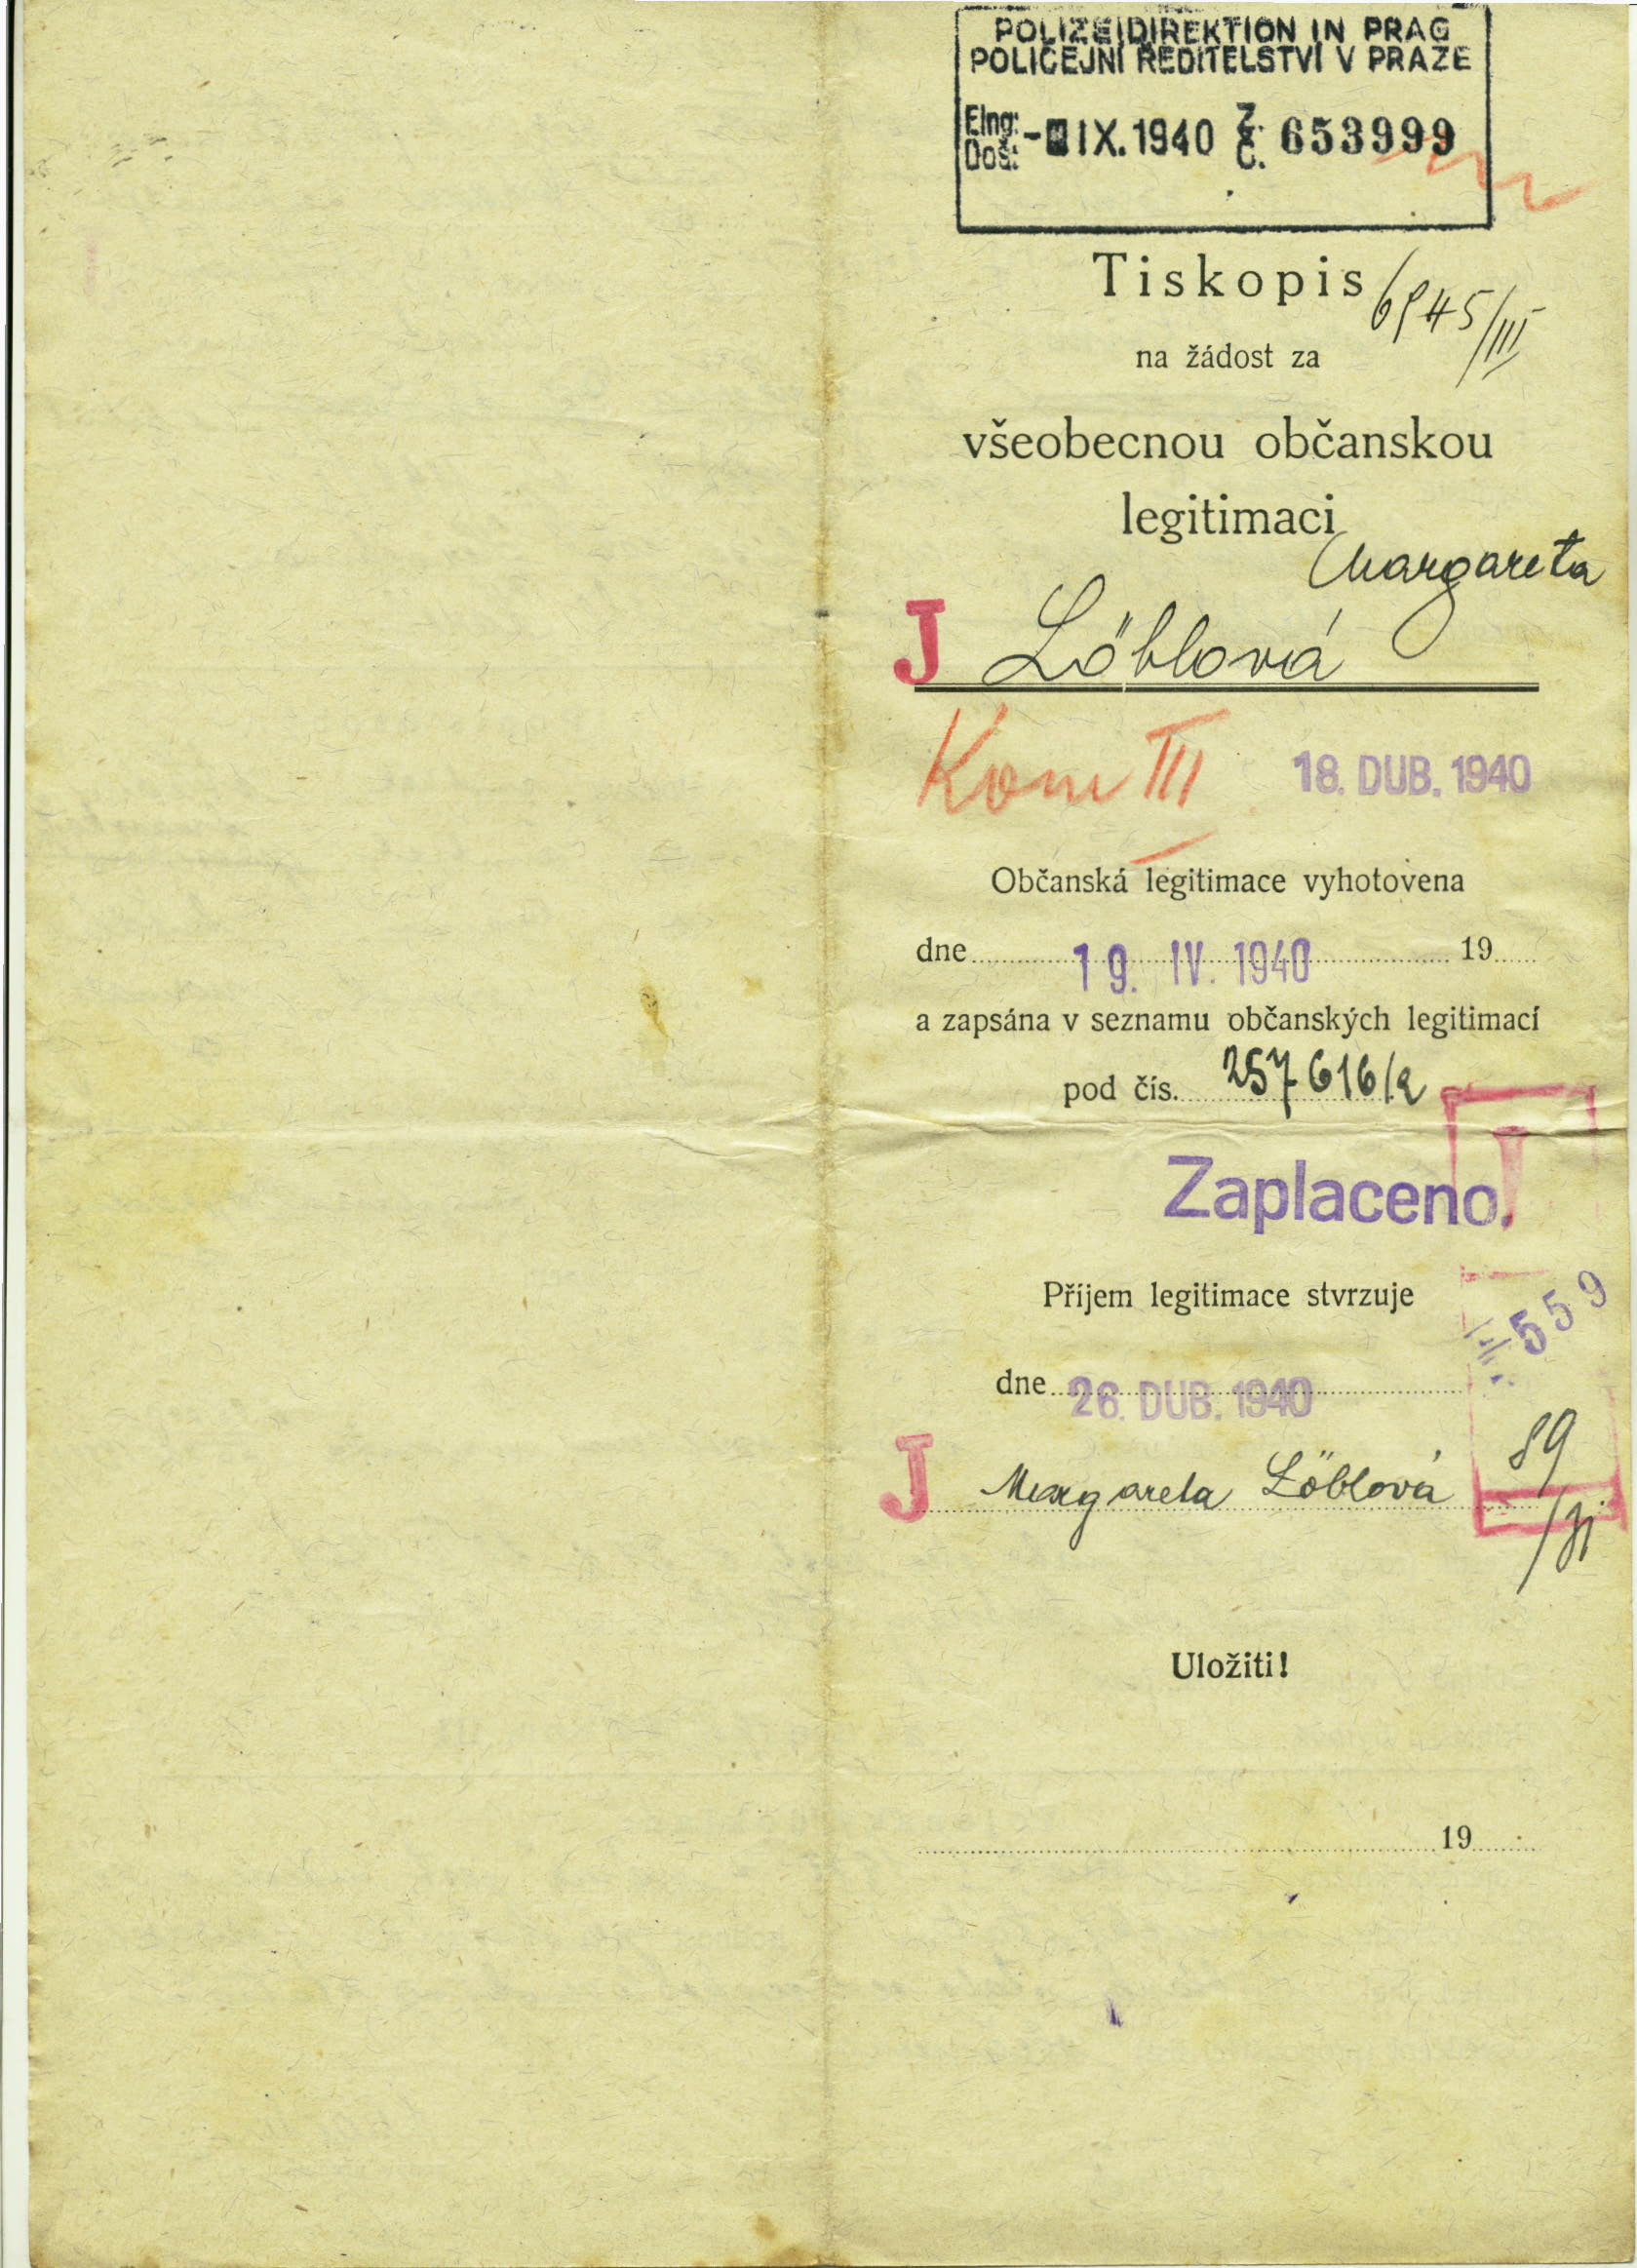 POLIZEIDIREKTION IN PRAG
POLICEJNÍ ŘEDITELSTVÍ V PRAZE
Eing:
Doš:
- IX. 1940
Z.
Č.
653999
Tiskopis
na žádost za
všeobecnou občanskou
legitimaci
Margareta
J Löblová
Kom III
18. DUB. 1940
Občanská legitimace vyhotovena
dne 19. IV. 1940 19
a zapsána v seznamu občanských legitimací
pod čís. 257616/
Zaplaceno.
J
Příjem legitimace stvrzuje
559
dne 26. DUB. 1940
89
J Margareta Löblová
Uložiti!
19